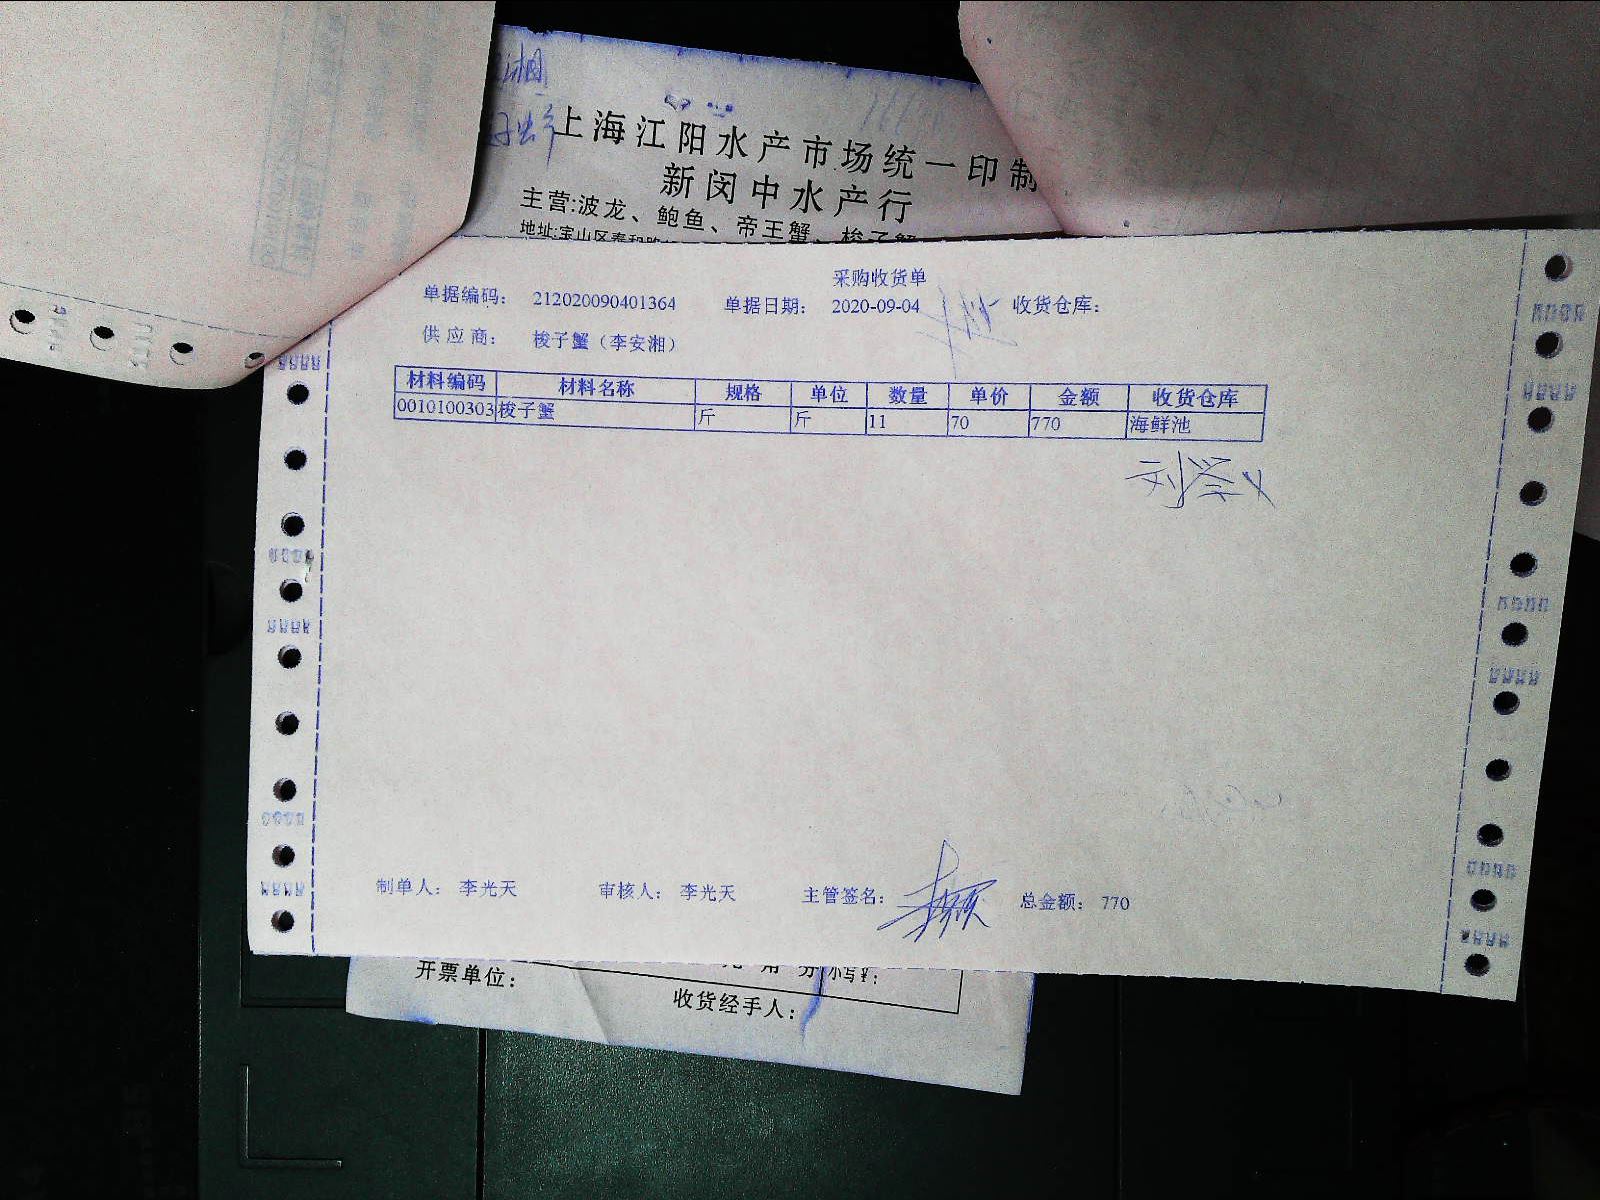 上海江阳水产市场统一印制
新闵中水产行
主营:波龙、鲍鱼、帝王蟹、梭子蟹
地址:宝山区泰和路
采购收货单
单据编码： 212020090401364 单据日期： 2020-09-04 收货仓库：
供应商： 梭子蟹（李安湘）
材料编码 材料名称 规格 单位 数量 单价 金额 收货仓库
0010100303 梭子蟹 斤 斤 11 70 770 海鲜池
刘学义
制单人： 李光天 审核人： 李光天 主管签名： 总金额： 770
元 角 分 小写¥：
开票单位：
收货经手人：